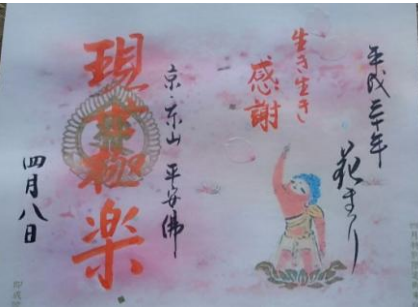 平成三十年
花まつり
生き生き
感謝
京・東山 平安佛
現世極楽
四月八日